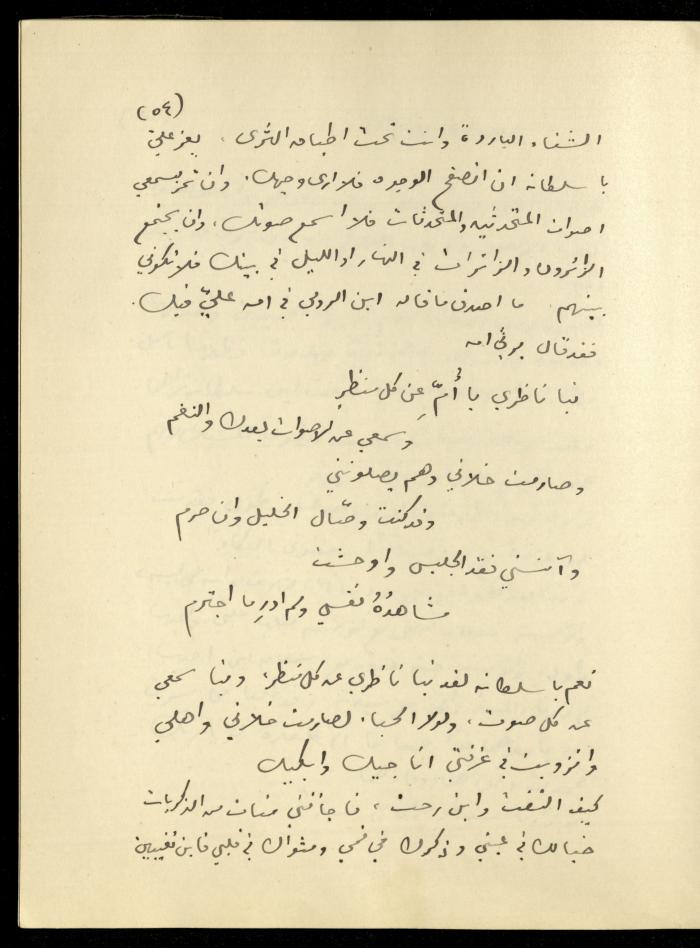 (٥٤)
الشتاء الباردة وانت تحت اطباق الثرى . يعز عليّ
يا سلطانه ان اتصفح الوجوه فلا ارى وجهك . وان تمر بسمعي
اصوات المتحدثين والمتحدثات فلا اسمع صوتك ، وان يجتمع
الزائرون والزائرات في النهار او الليل في بيتك فلا تكوني
بينهم . ما اصدق ما قاله ابن الرومي في امه عليّ فيك .
فقد قال يرثي امه
نبا ناظري يا أُمّ عن كل منظرٍ
وسمعي عن الاصوات بعدك والنغم
وصارمت خلاني وهم يصلونني
وقد كنت وصّال الخليل وان صرم
وآنسني فقد الجليس واوحشت
مشاهدُهُ نفسي ولم ادرِ ما اجترم
نعم يا سلطانه لقد نبا ناظري عن كل منظر ، ونبا سمعي
عن كل صوت ، ولولا الحياء لصارمت خلاني واهلي
وانزويت في غرفتي اناجيك وابكيك
كيف التفت واين رحت ، فاجأتني مئات من الذكريات
خيالك في عيني وذكرك في فمي ومثواك في قلبي فاين تغيبين